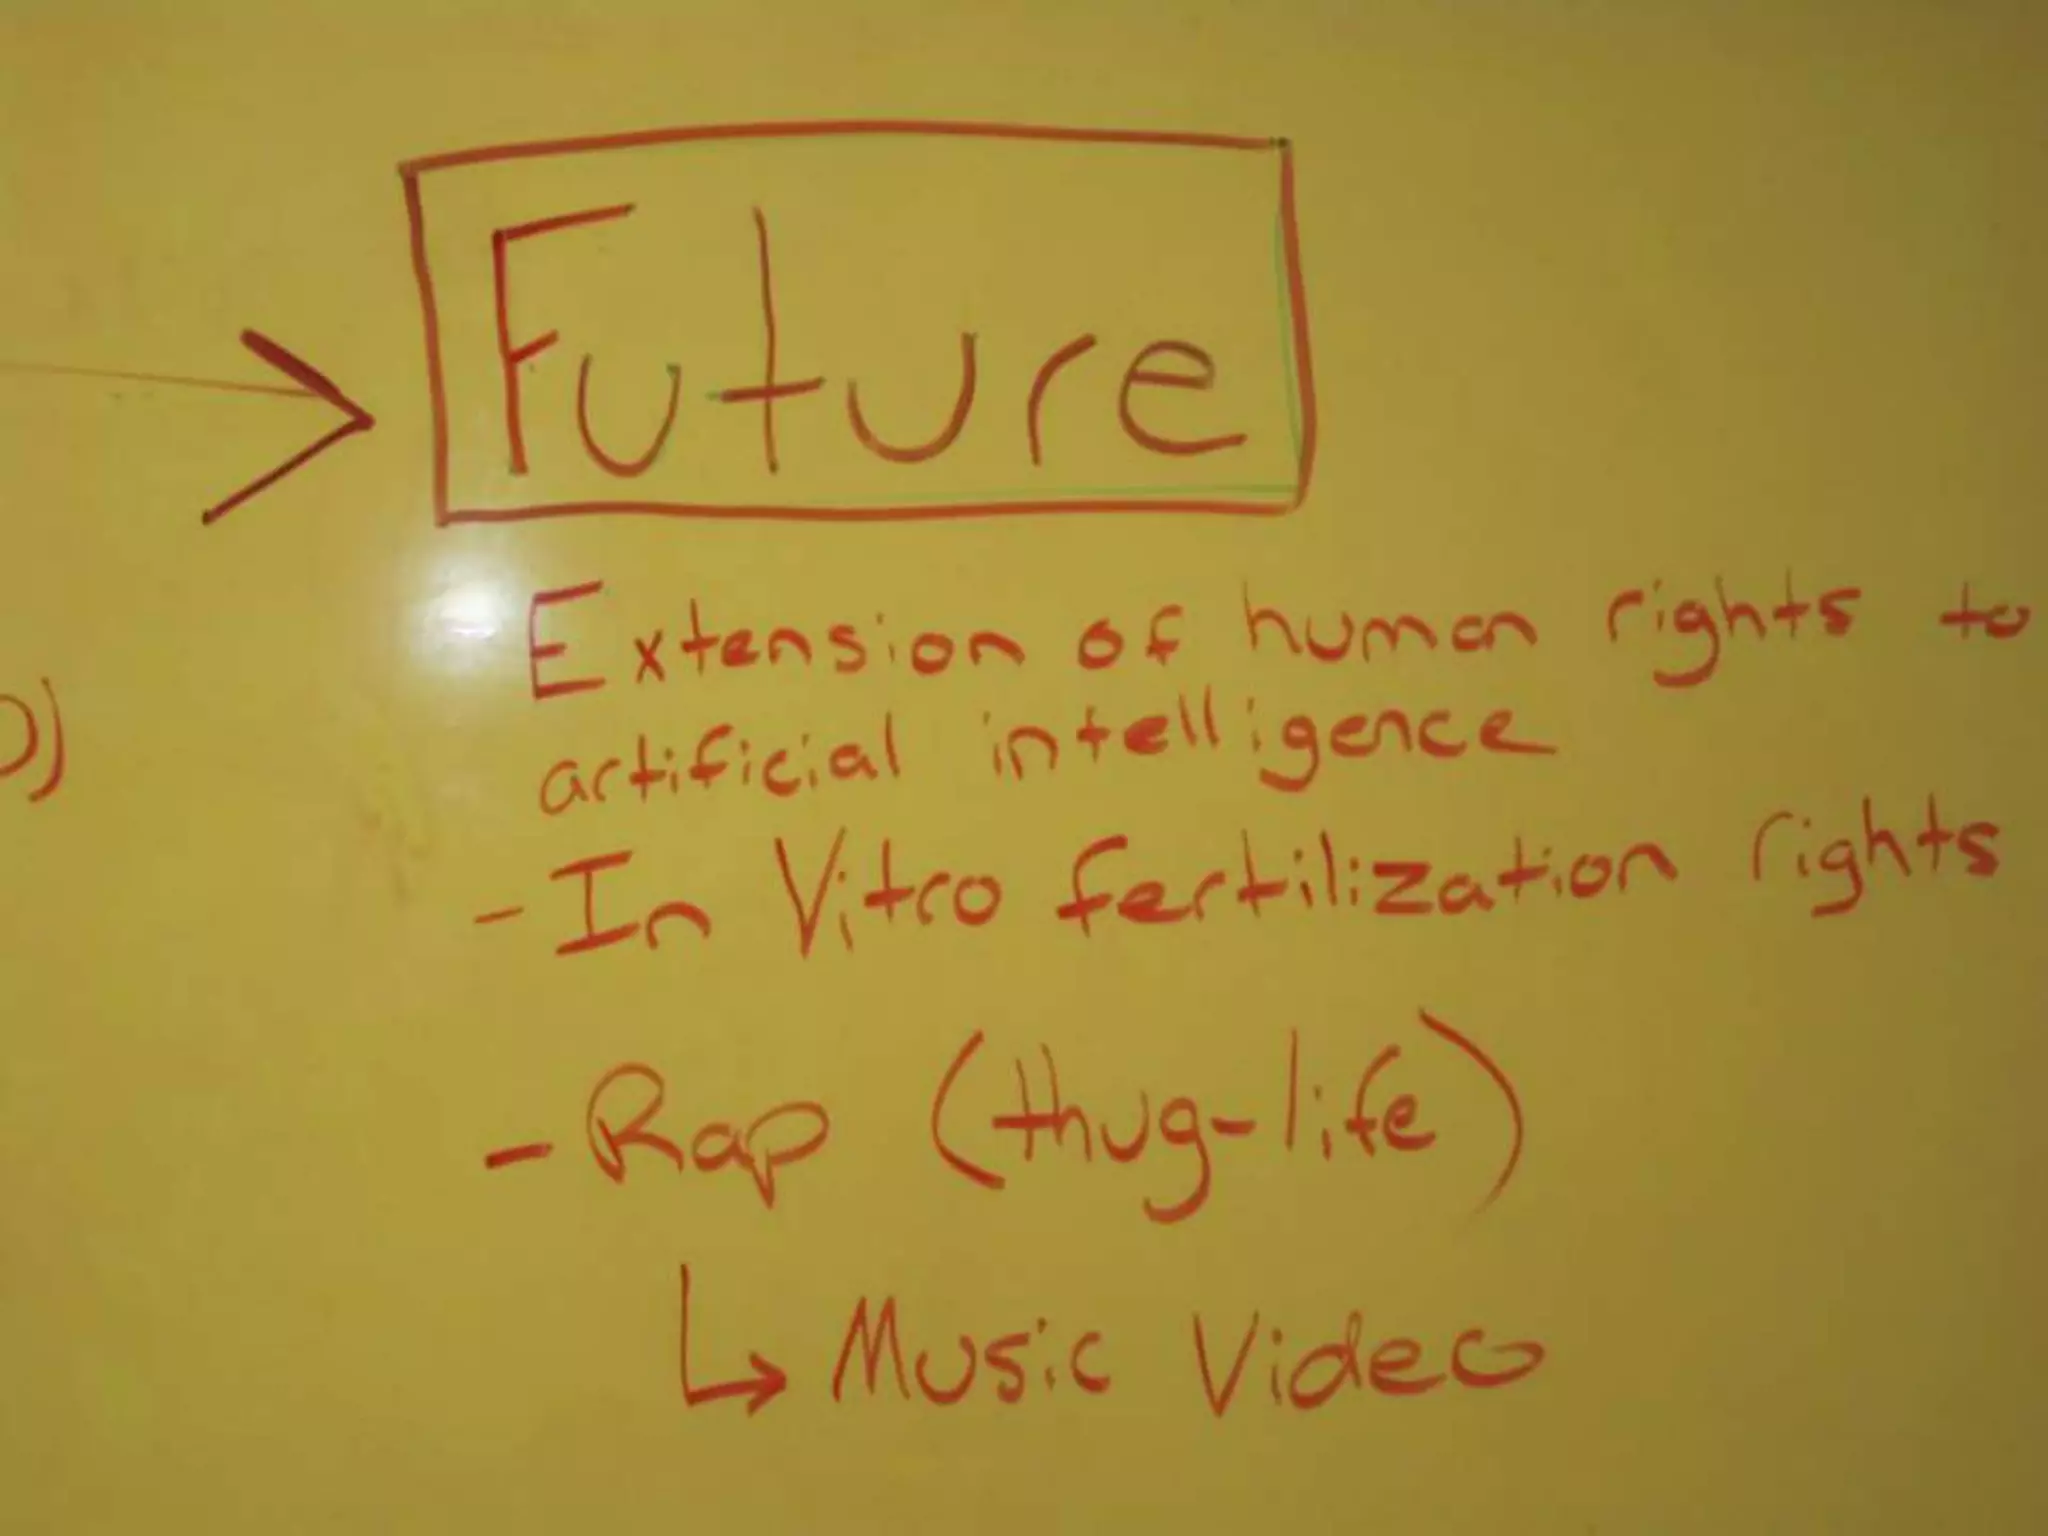 Future
Extension of human rights to
artificial intelligence
- In Vitro fertilization rights
- Rap (thug-life)
Music Video